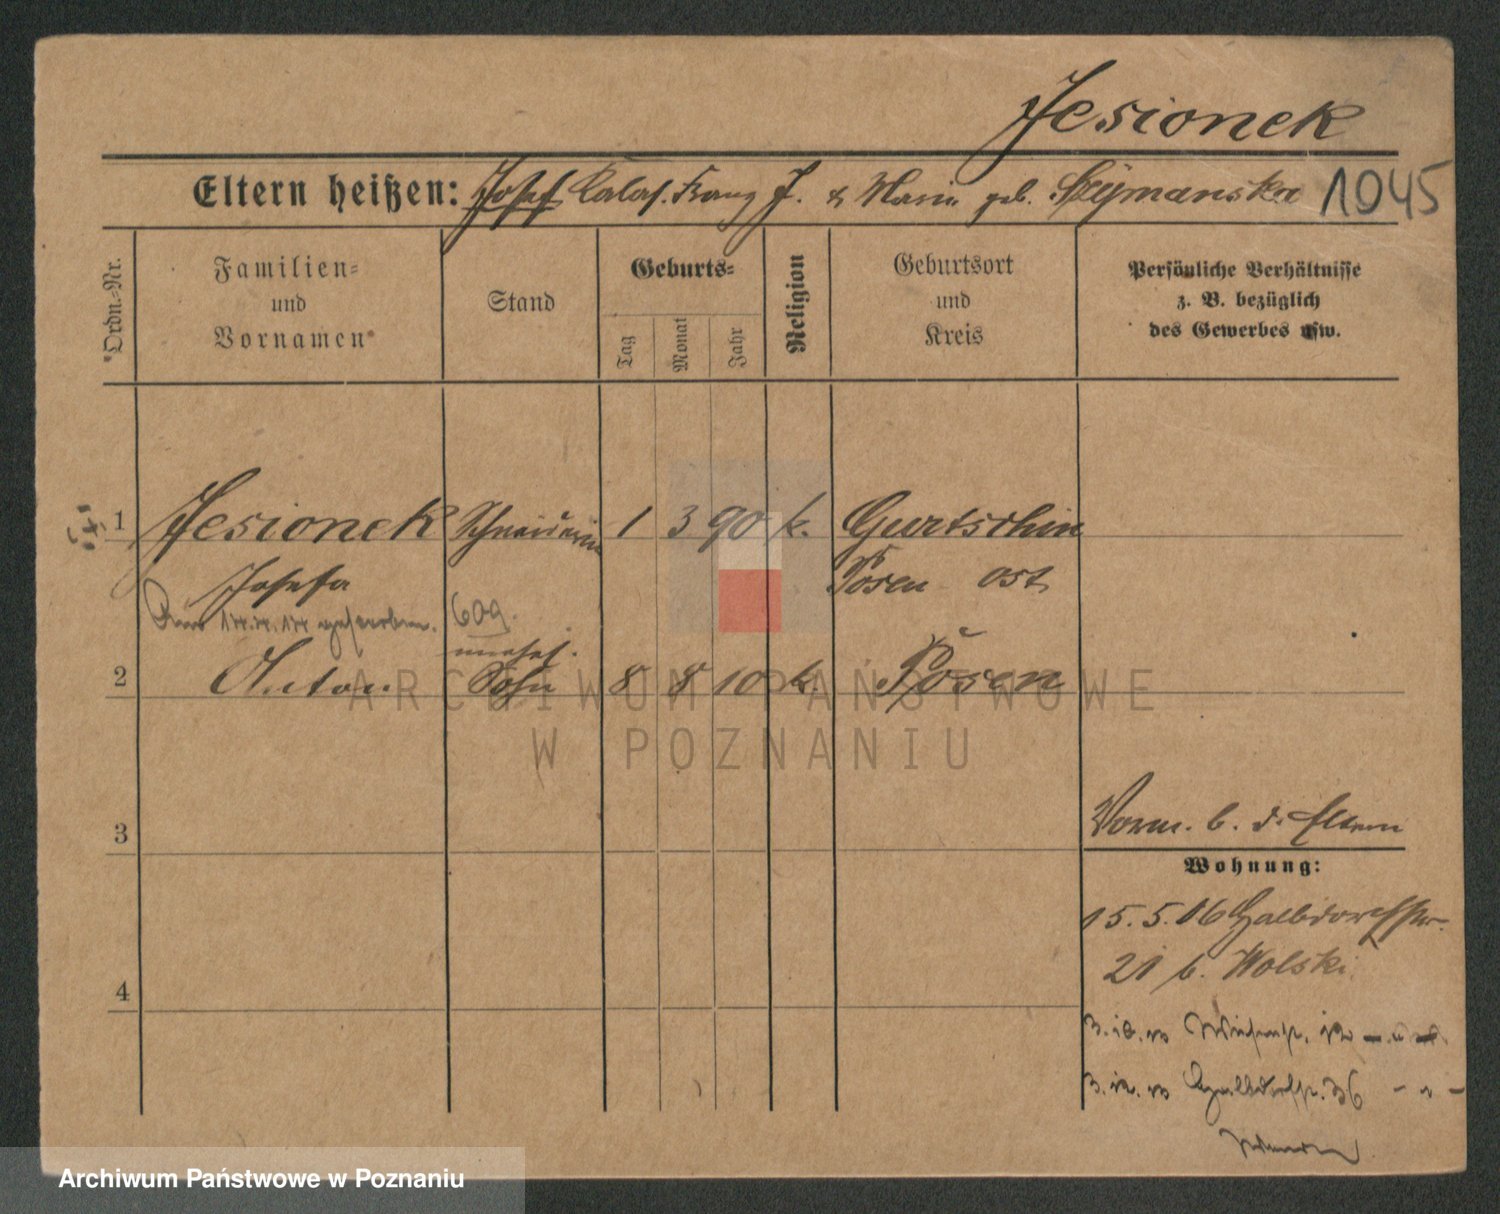 Jesionek
Eltern heißen: Josef Franz J. & Marie geb. Szymanska 1045
Ordn.-Nr.
Familien-
und
Vornamen
Stand
Geburts-
Tag
Monat
Jahr
Religion
Geburtsort
und
Kreis
Persönliche Verhältnisse
z. B. bezüglich
des Gewerbes usw.
1 Jesionek Schneiderin 1 3 90 k. Gurtschin
Josefa Posen Ost
gestorben.
unehel.
2 Anton Sohn 8 8 10 k. Posen
3
Vorm. b. d. Eltern
Wohnung:
15.5.06 Halbdorfstr.
21 b. Wolski
4
Halbdorfstr. 36
ARCHIWUM PAŃSTWOWE
W POZNANIU
Archiwum Państwowe w Poznaniu